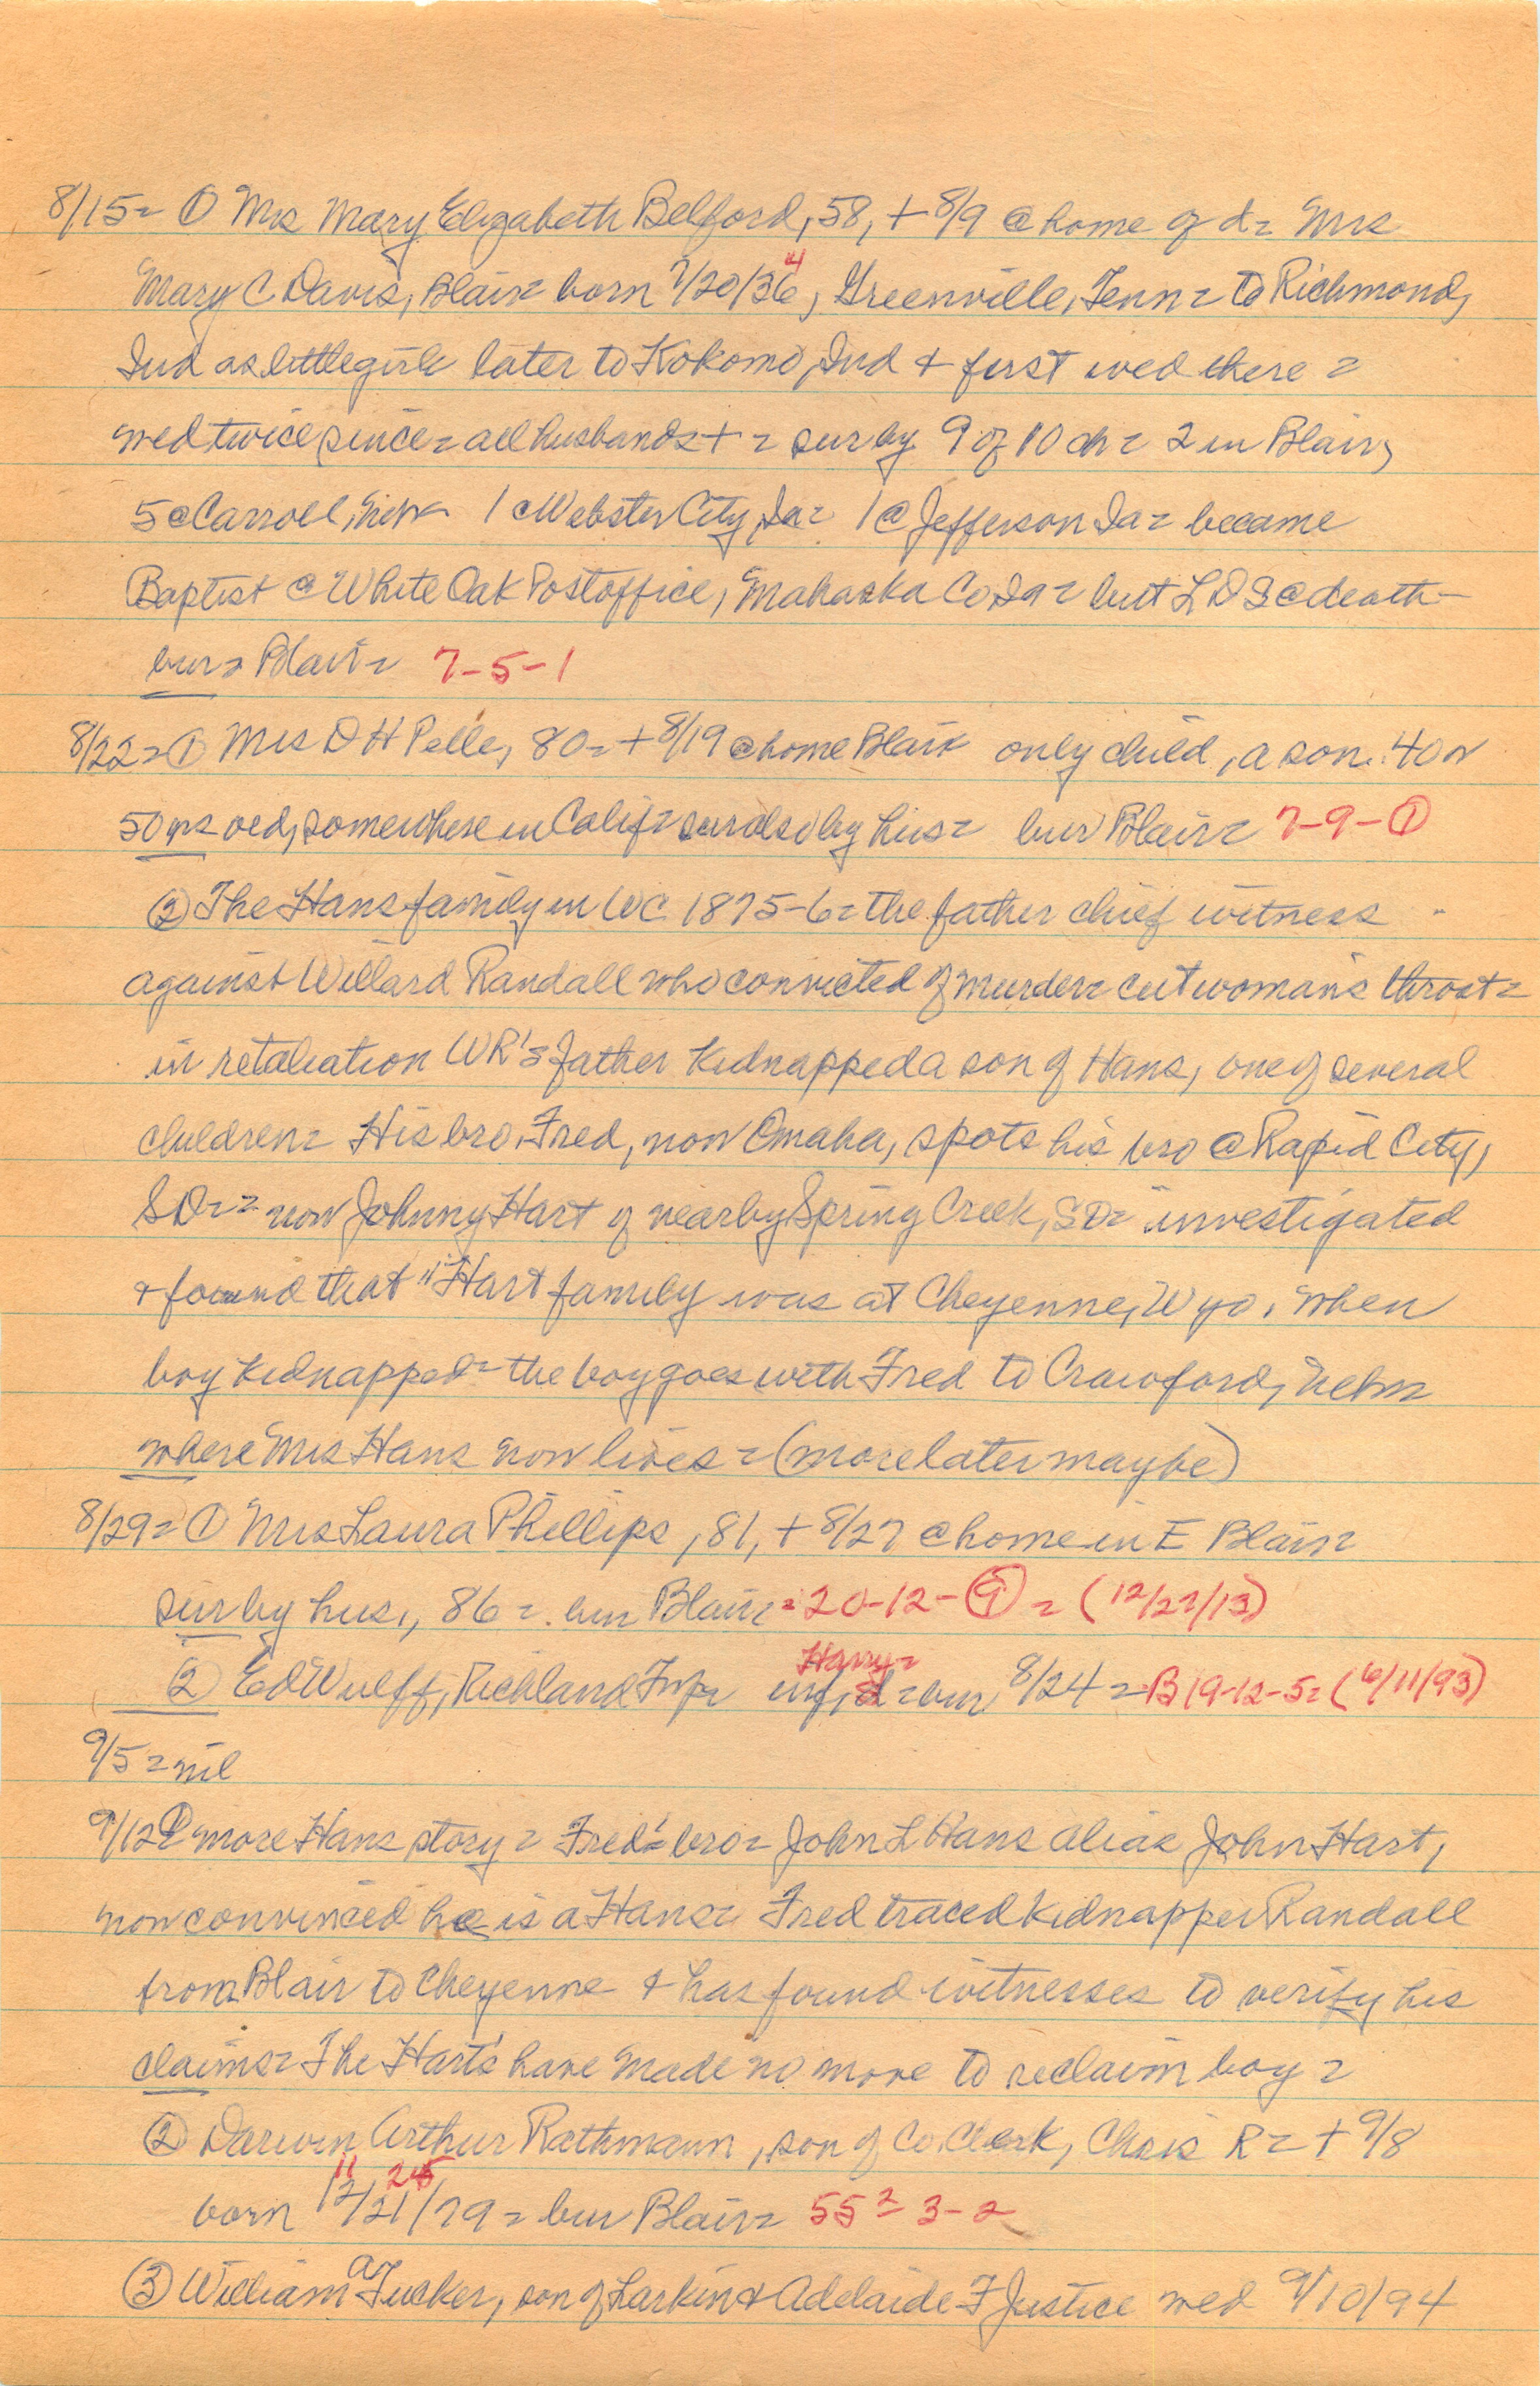 8/15= ① Mrs Mary Elizabeth Belford, 58, + 8/9 @ home of d= Mrs
Mary C Davis, Blair= born 7/20/36 4, Greenville, Tenn= to Richmond,
Ind as little girl= later to Kokomo, Ind + first wed there =
wed twice since= all husbands + = sur by 9 of 10 ch= 2 in Blair,
5 @ Carroll, Neb= 1 @ Webster City, Ia= 1 @ Jefferson Ia= became
Baptist @ White Oak Postoffice, Mahaska Co Ia= but LDS @ death-
bur= Blair= 7-5-1
8/22= ① Mrs D H Pelle, 80= + 8/19 @ home Blair only child, a son. 40 or
50 yrs old, somewhere in Calif= sur also by hus= bur Blair= 7-9-①
② The Hans family in WC 1875-6= the father chief witness
against Willard Randall who convicted of murder= cut woman's throat=
in retaliation WR's father kidnapped a son of Hans, one of several
children= His bro, Fred, now Omaha, spots his bro @ Rapid City,
SD== now Johnny Hart of nearby Spring Creek, SD= investigated
+ found that "Hart family was at Cheyenne, Wyo, when
boy kidnapped= the boy goes with Fred to Crawford, Nebr=
where Mrs Hans now lives = (more later maybe)
8/29= ① Mrs Laura Phillips, 81, + 8/27 @ home in E Blair=
sur by hus, 86=. bur Blair= 20-12-⑨ = (12/22/13)
② Ed Wulff, Richland Twp= inf, Harry= s= bur 8/24 = B 19-12-5= (6/11/93)
9/5= nil
9/12 ① more Hans story = Fred's bro= John L Hans alias John Hart,
now convinced he is a Hans= Fred traced kidnapper Randall
from Blair to Cheyenne + has found witnesses to verify his
claims= The Harts' have made no move to reclaim boy =
② Darwin Arthur Rathmann, son of Co. Clerk, Chris R= + 9/8
born 12/21/79 11 25 = bur Blair= 55= 3-2
③ William A Tucker, son of Larkin + Adelaide F Justice wed 9/10/94